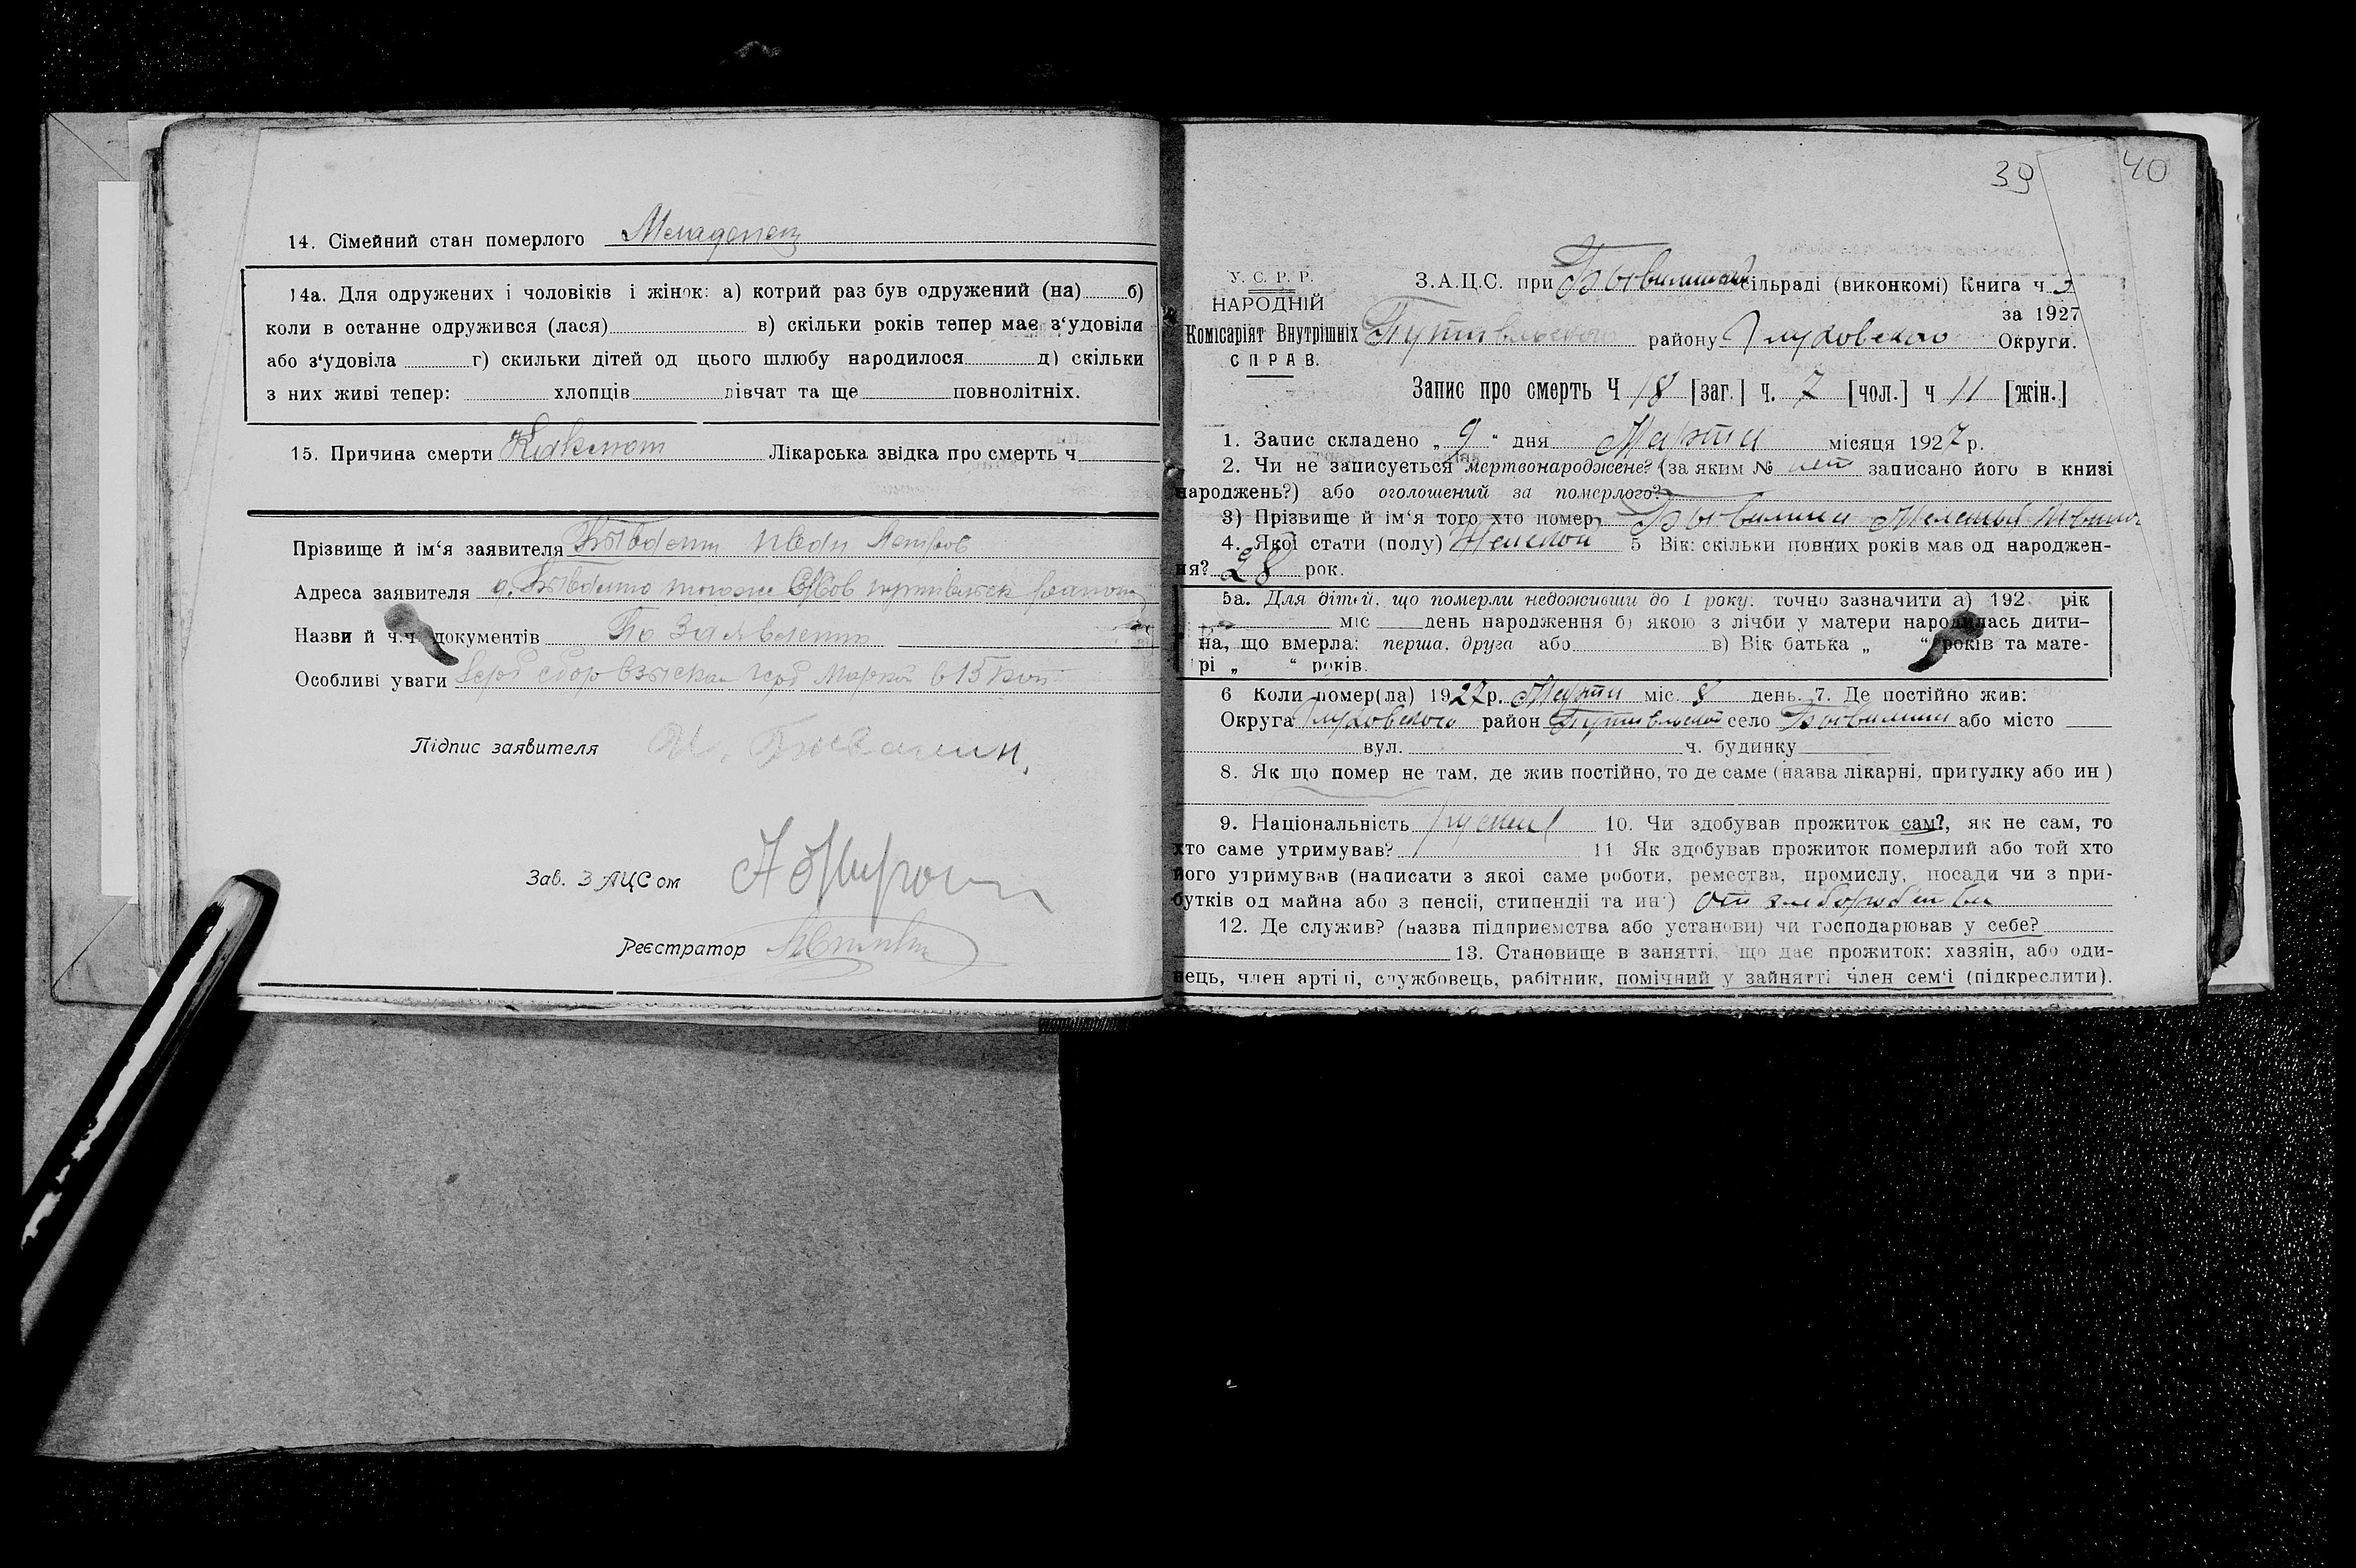 14. Сімейний стан померлого Младенец
14а. Для одружених і чоловіків і жінок: а) котрий раз був одружений (на) б)
коли в останне одружився (лася) в) скільки років тепер має з‘удовіли
або з‘удовіла г) скильки дітей од цього шлюбу народилося д) скільки
з них живі тепер: хлопців дівчат та ще повнолітніх.
15. Причина смерти Лікарська звідка про смерть ч
Прізвище й ім‘я заявителя
Адреса заявителя
Назви й ч.ч документів По Заявлению
Особливі уваги
Підпис заявителя И. Бывалин.
Зав. З АЦС ом
Реєстратор
39 40
У. С. Р. Р.
НАРОДНІЙ
Комісаріят Внутрішніх
СПРАВ.
З.А.Ц.С. при сільраді (виконкомі) Книга ч
за 1927
Путивльского району Глуховского Округи.
Запис про смерть Ч 18 [заг.] ч. 7 [чол.] ч 11 [жін.]
1. Запис складено „ 9 “ дня Марта місяця 1927 р.
2. Чи не записуеться мертвонароджене? (за яким № нет записано його в книзі
народжень?) або оголошений за померлого?
3) Прізвище й ім‘я того хто помер
4. Якої стати (полу) Женской 5 Вік: скільки повних років мав од народжен-
ня? 28 рок.
5а. Для дітей, що померли недоживши до 1 року: точно зазначити а) 192 рік
міс день народження б) якою з лічби у матери народилась дити-
на, що вмерла: перша, друга або в) Вік батька „ “ років та мате-
рі „ “ років.
6 Коли помер(ла) 1927 р. Марта міс. 8 день. 7. Де постійно жив:
Округа Глуховского район Путивльской село або місто
вул. ч. будинку
8. Як що помер не там, де жив постійно, то де саме (назва лікарні, притулку або ин )
9. Національність 10. Чи здобував прожиток сам?, як не сам, то
хто саме утримував? 11 Як здобував прожиток померлий або той хто
його утримував (написати з якоі саме роботи, ремества, промислу, посади чи з при-
бутків од майна або з пенсіі, стипендіі та ин ) от хлеборобства
12. Де служив? (назва підприємства або установи) чи господарював у себе?
13. Становище в занятті, що дає прожиток: хазяін, або оди-
нець, член артілі, службовець, рабітник, помічний у зайнятті член сем‘і (підкреслити).